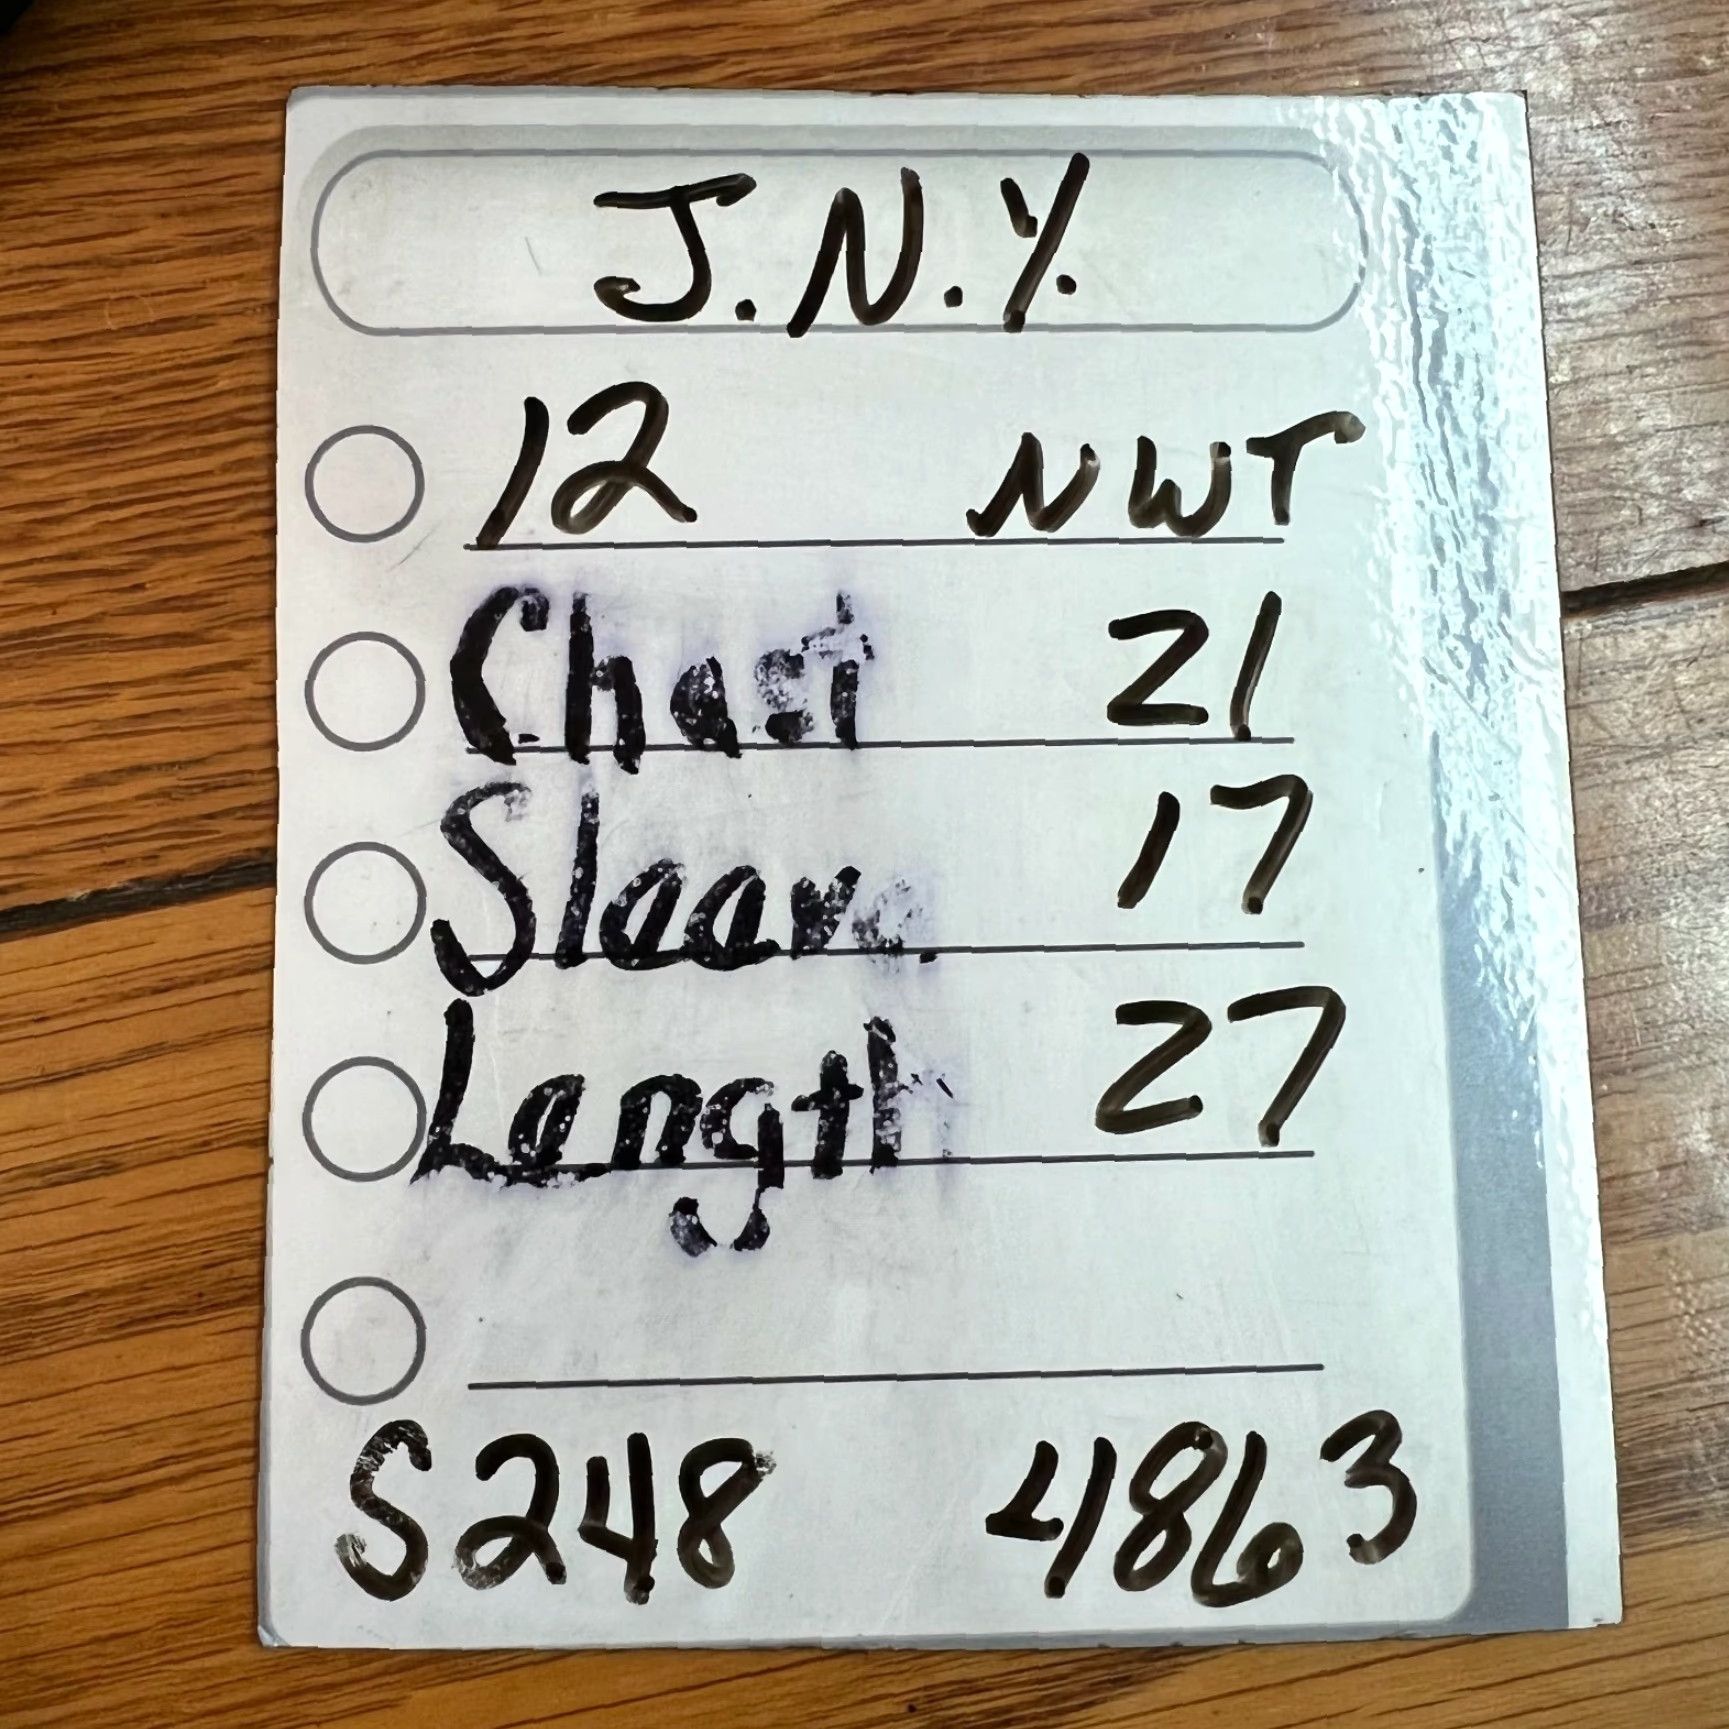 J.N.Y.
12 NWT
Chest 21
Sleeve 17
Length 27
S248 4863